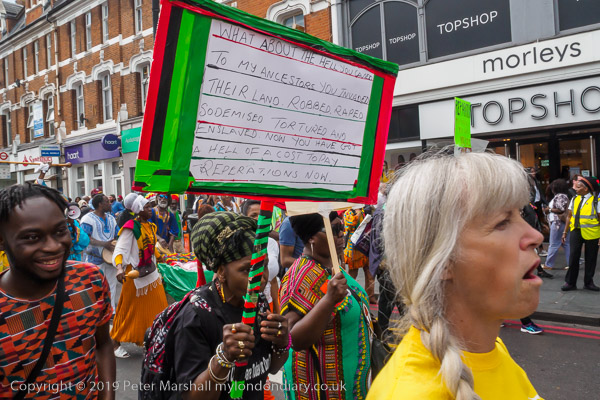 WHAT ABOUT THE HELL YOU CAUSED
TO MY ANCESTORS YOU INVADED
THEIR LAND ROBBED RAPED
SODEMISED TORTURED AND
ENSLAVED NOW YOU HAVE GOT
A HELL OF A COST TO PAY
REPERATIONS NOW.
TOPSHOP
TOPSHOP
TOPSHOP
morleys
TOPSHO
haart
Copyright © 2019 Peter Marshall mylondondiary.co.uk